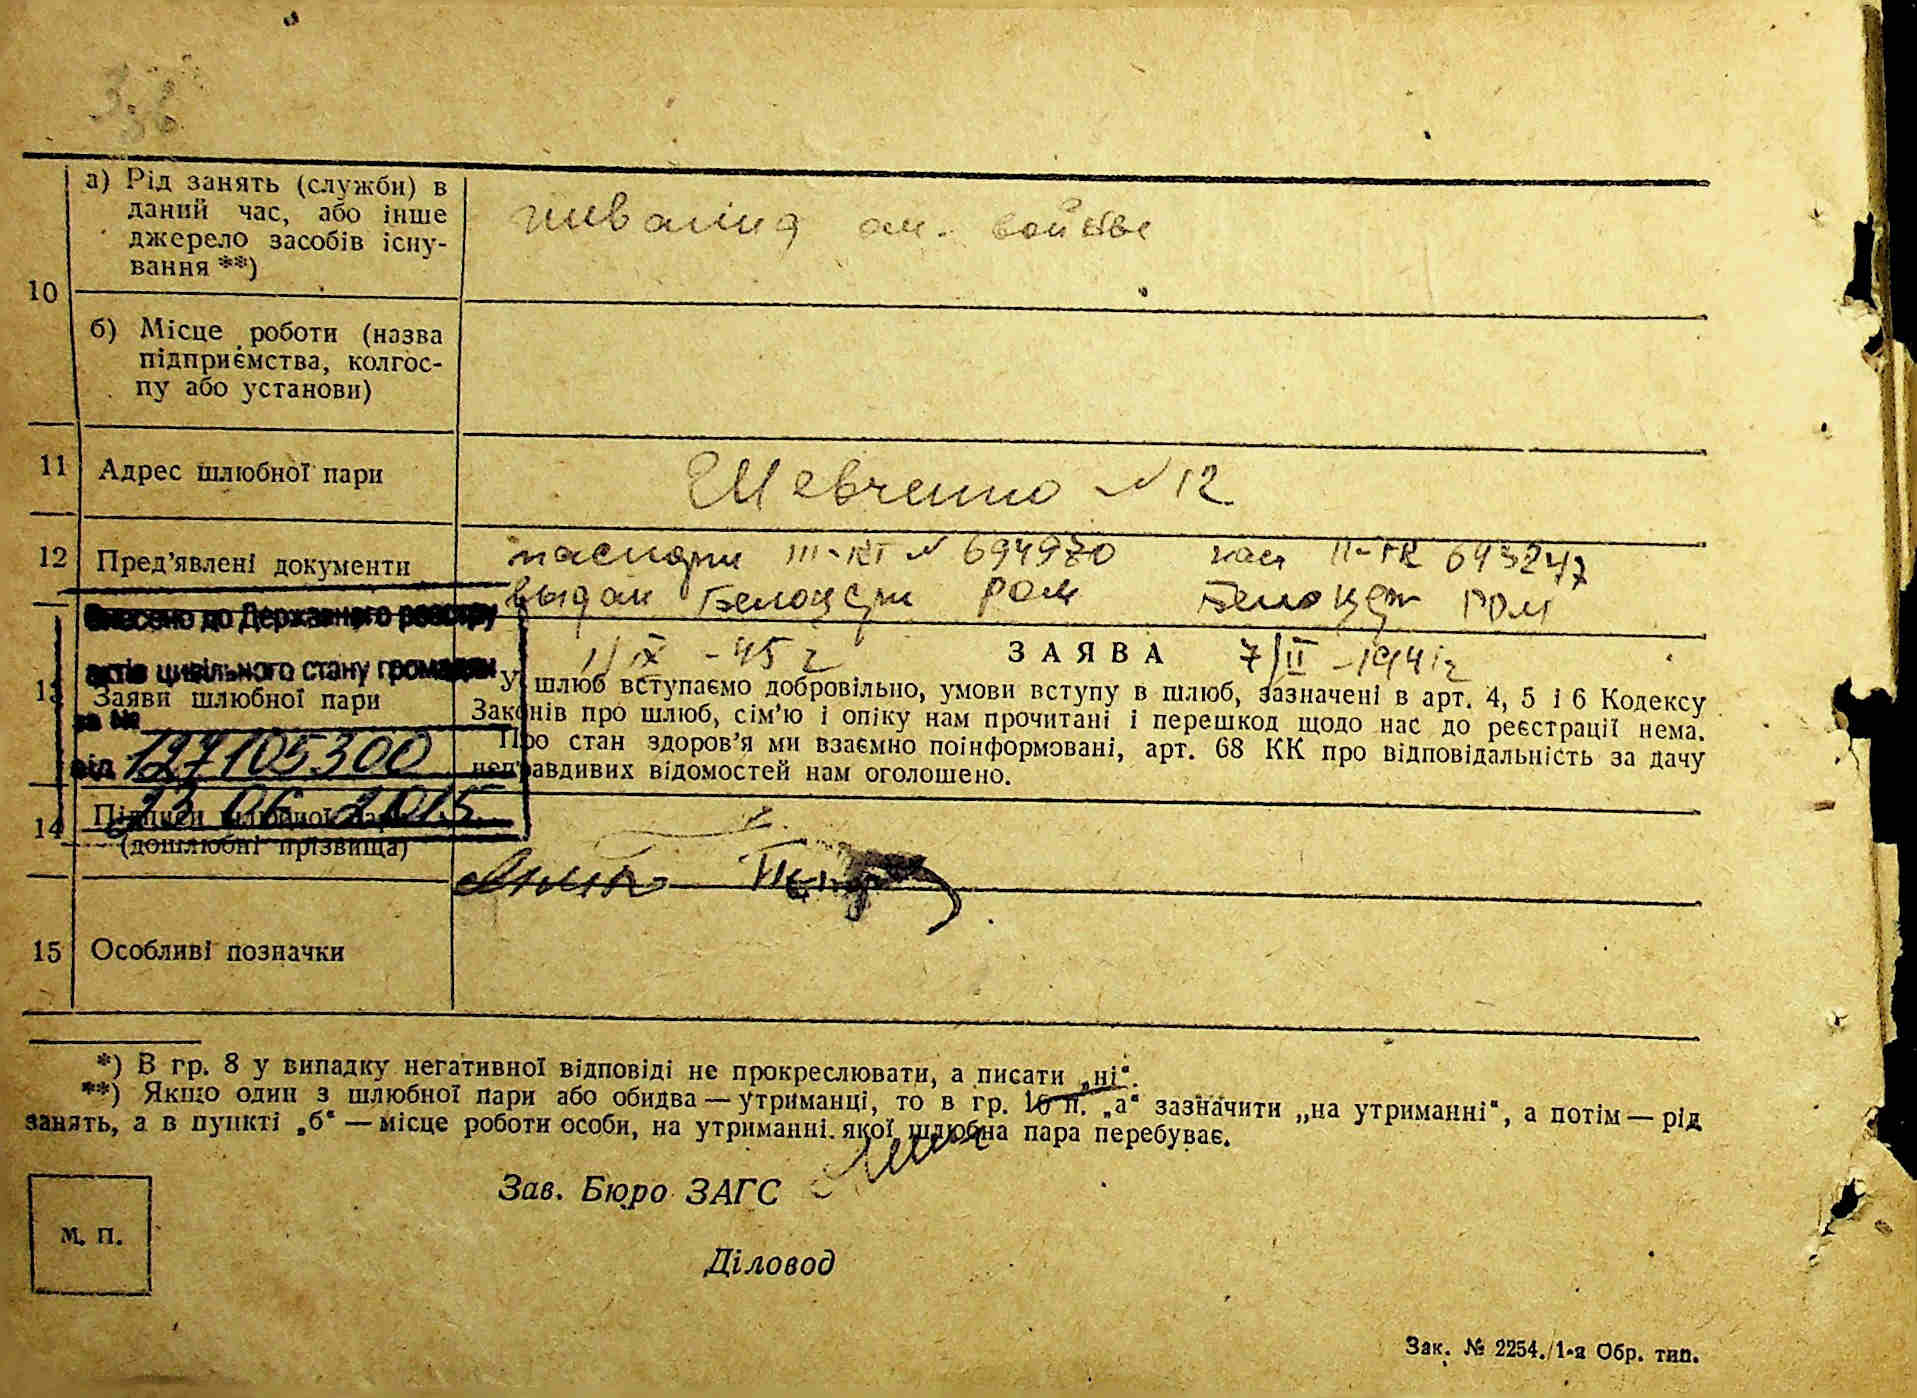 10
а) Рід занять (служби) в
даний час, або інше
джерело засобів існу-
вання **)
инвалид
б) Місце роботи (назва
підприємства, колгос-
пу або установи)
11 Адрес шлюбної пари
Шевченко №12
12 Пред’явлені документи
паспорт III-КГ № 694970
выдан Белоцерк РОМ
1/IX -45 г
II-ГК 693247
Белоцерк РОМ
7/II -1941г
Внесено до Державного реєстру
актів цивільного стану громадян
за №
127105300
від 23 06 2015
13 Заяви шлюбної пари
ЗАЯВА
У шлюб вступаємо добровільно, умови вступу в шлюб, зазначені в арт. 4, 5 і 6 Кодексу
Законів про шлюб, сім’ю і опіку нам прочитані і перешкод щодо нас до реєстрації нема.
Про стан здоров’я ми взаємно поінформовані, арт. 68 КК про відповідальність за дачу
неправдивих відомостей нам оголошено.
14 Підписи шлюбної пари
(дошлюбні прізвища)
15 Особливі позначки
*) В гр. 8 у випадку негативної відповіді не прокреслювати, а писати „ні“.
**) Якщо один з шлюбної пари або обидва — утриманці, то в гр. 10 п. „а“ зазначити „на утриманні“, а потім — рід
занять, а в пункті „б“ — місце роботи особи, на утриманні якої шлюбна пара перебуває.
Зав. Бюро ЗАГС
Діловод
М. П.
Зак. № 2254./1-я Обр. тип.